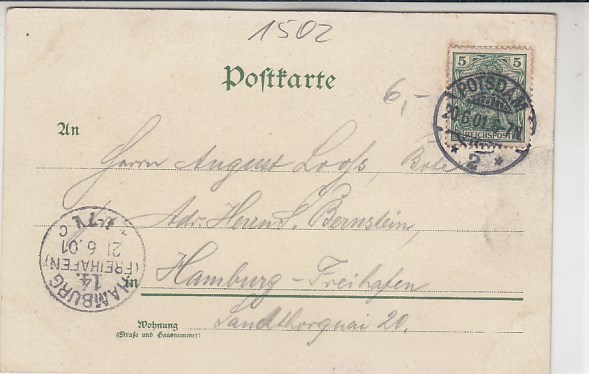 1502
Postkarte
6,-
5 5
REICHSPOST
POTSDAM
20.6.01. 6-7N
* 2 *
An
Herrn August Loofs, Bole
Adr. Herrn S. Bernstein,
in Hamburg-Freihafen
Sandthorquai 20.
Wohnung
(Straße und Hausnummer)
HAMBURG
14.
(FREIHAFEN)
21.6.01